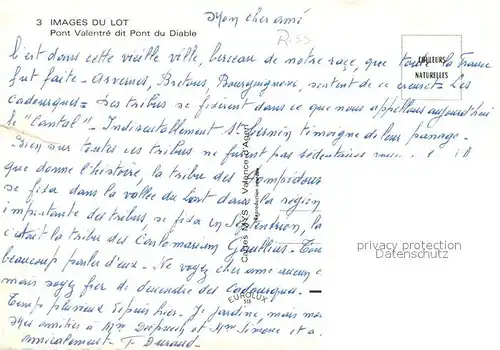 3 IMAGES DU LOT
Pont Valentré dit Pont du Diable
Mon cher ami
COULEURS
NATURELLES
C'est dans cette vieille ville, berceau de notre race, que toute la France
fut faite - Arvernes, Bretons, Bourguignons, sortent de ce creuset - Les
cadourques = Ces tribus se fixèrent dans ce que nous appellons aujourd'hui
le "Cantal" - Indiscutablement St Cernin témoigne de leur passage.
Bien sur toutes ces tribus ne furent pas sédentaires
que donne l'histoire, la tribu des Pompidoues
se fixa dans la vallée du Lot dans la région
importante des tribus se fixa en Septentrion, la
c'était la tribu des Gaulliens -
beaucoup parler d'eux - Ne voyez cher ami aucun
mais soyez fier de descendre des Cadourques -
Temps pluvieux depuis hier. Je jardine, mais
Mes amitiés à Mme et Mme Simone et a
amicalement F. Durand
Cages MYS - Valence d'Agen
Reproduction interdite
EUROLUX
privacy protection
Datenschutz